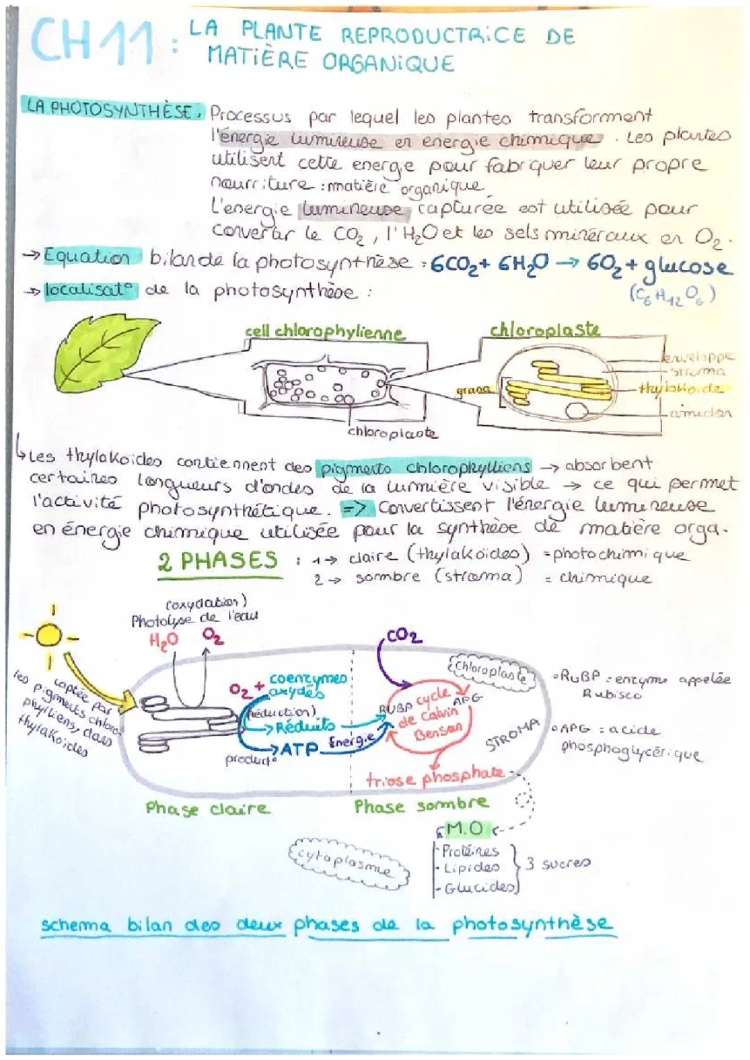 CH 11 : LA PLANTE REPRODUCTRICE DE
MATIÈRE ORGANIQUE
LA PHOTOSYNTHÈSE : Processus par lequel les plantes transforment
l'énergie lumineuse en energie chimique. Les plantes
utilisent cette energie pour fabriquer leur propre
nourriture : matière organique
L'energie lumineuse capturée est utilisée pour
convertir le CO2, l'H2O et les sels minéraux en O2.
→ Equation bilan de la photosynthèse : 6CO2 + 6H2O → 6O2 + glucose
(C6H12O6)
→ localisat° de la photosynthèse :
cell chlorophylienne
chloroplaste
enveloppe
stroma
grana
thylakoide
amidon
chloroplaste
↳ Les thylakoïdes contiennent des pigments chlorophylliens → absorbent
certaines longueurs d'ondes de la lumière visible → ce qui permet
l'activité photosynthétique. => Convertissent l'énergie lumineuse
en énergie chimique utilisée pour la synthèse de matière orga.
2 PHASES : 1 → claire (thylakoïdes) = photochimique
2 → sombre (stroma) = chimique
(oxydation)
Photolyse de l'eau
H2O O2
captée par
les pigments chloro
phylliens, dans
thylakoïdes
O2 + coenzymes
oxydés
(réduction)
Réduits
ATP
Énergie
product°
CO2
RUBP cycle APG
de Calvin
Benson
triose phosphate
Chloroplaste
STROMA
• RuBP : enzyme appelée
Rubisco
• APG : acide
phosphoglycérique
Phase claire
Phase sombre
cytoplasme
M.O
- Protéines
- Lipides
- Glucides
3 sucres
schema bilan des deux phases de la photosynthèse